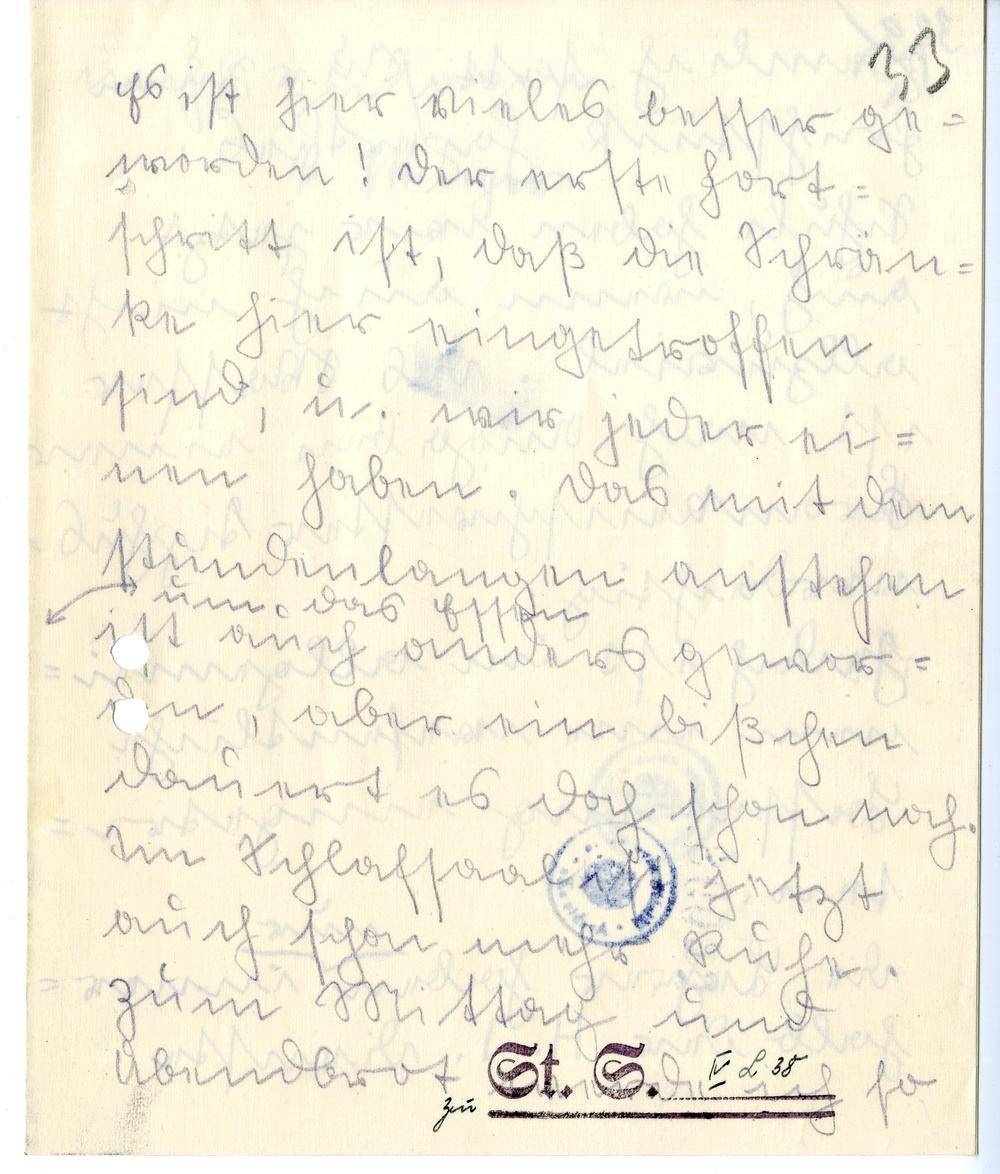 33
Es ist hier vieles besser ge=
worden! Der erste Fort=
schritt ist, daß die Schrän=
ke hier eingetroffen
sind, u. wir jeder ei=
nen haben. Das mit dem
stundenlangen anstehen
um das Essen
ist auch anders gewor=
den, aber ein bißchen
dauert es doch schon noch.
Im Schlafsaal ist jetzt
auch schon mehr Ruhe.
Zum Mittag und
Abendbrot werde ich so
zu St. S. IV L 38